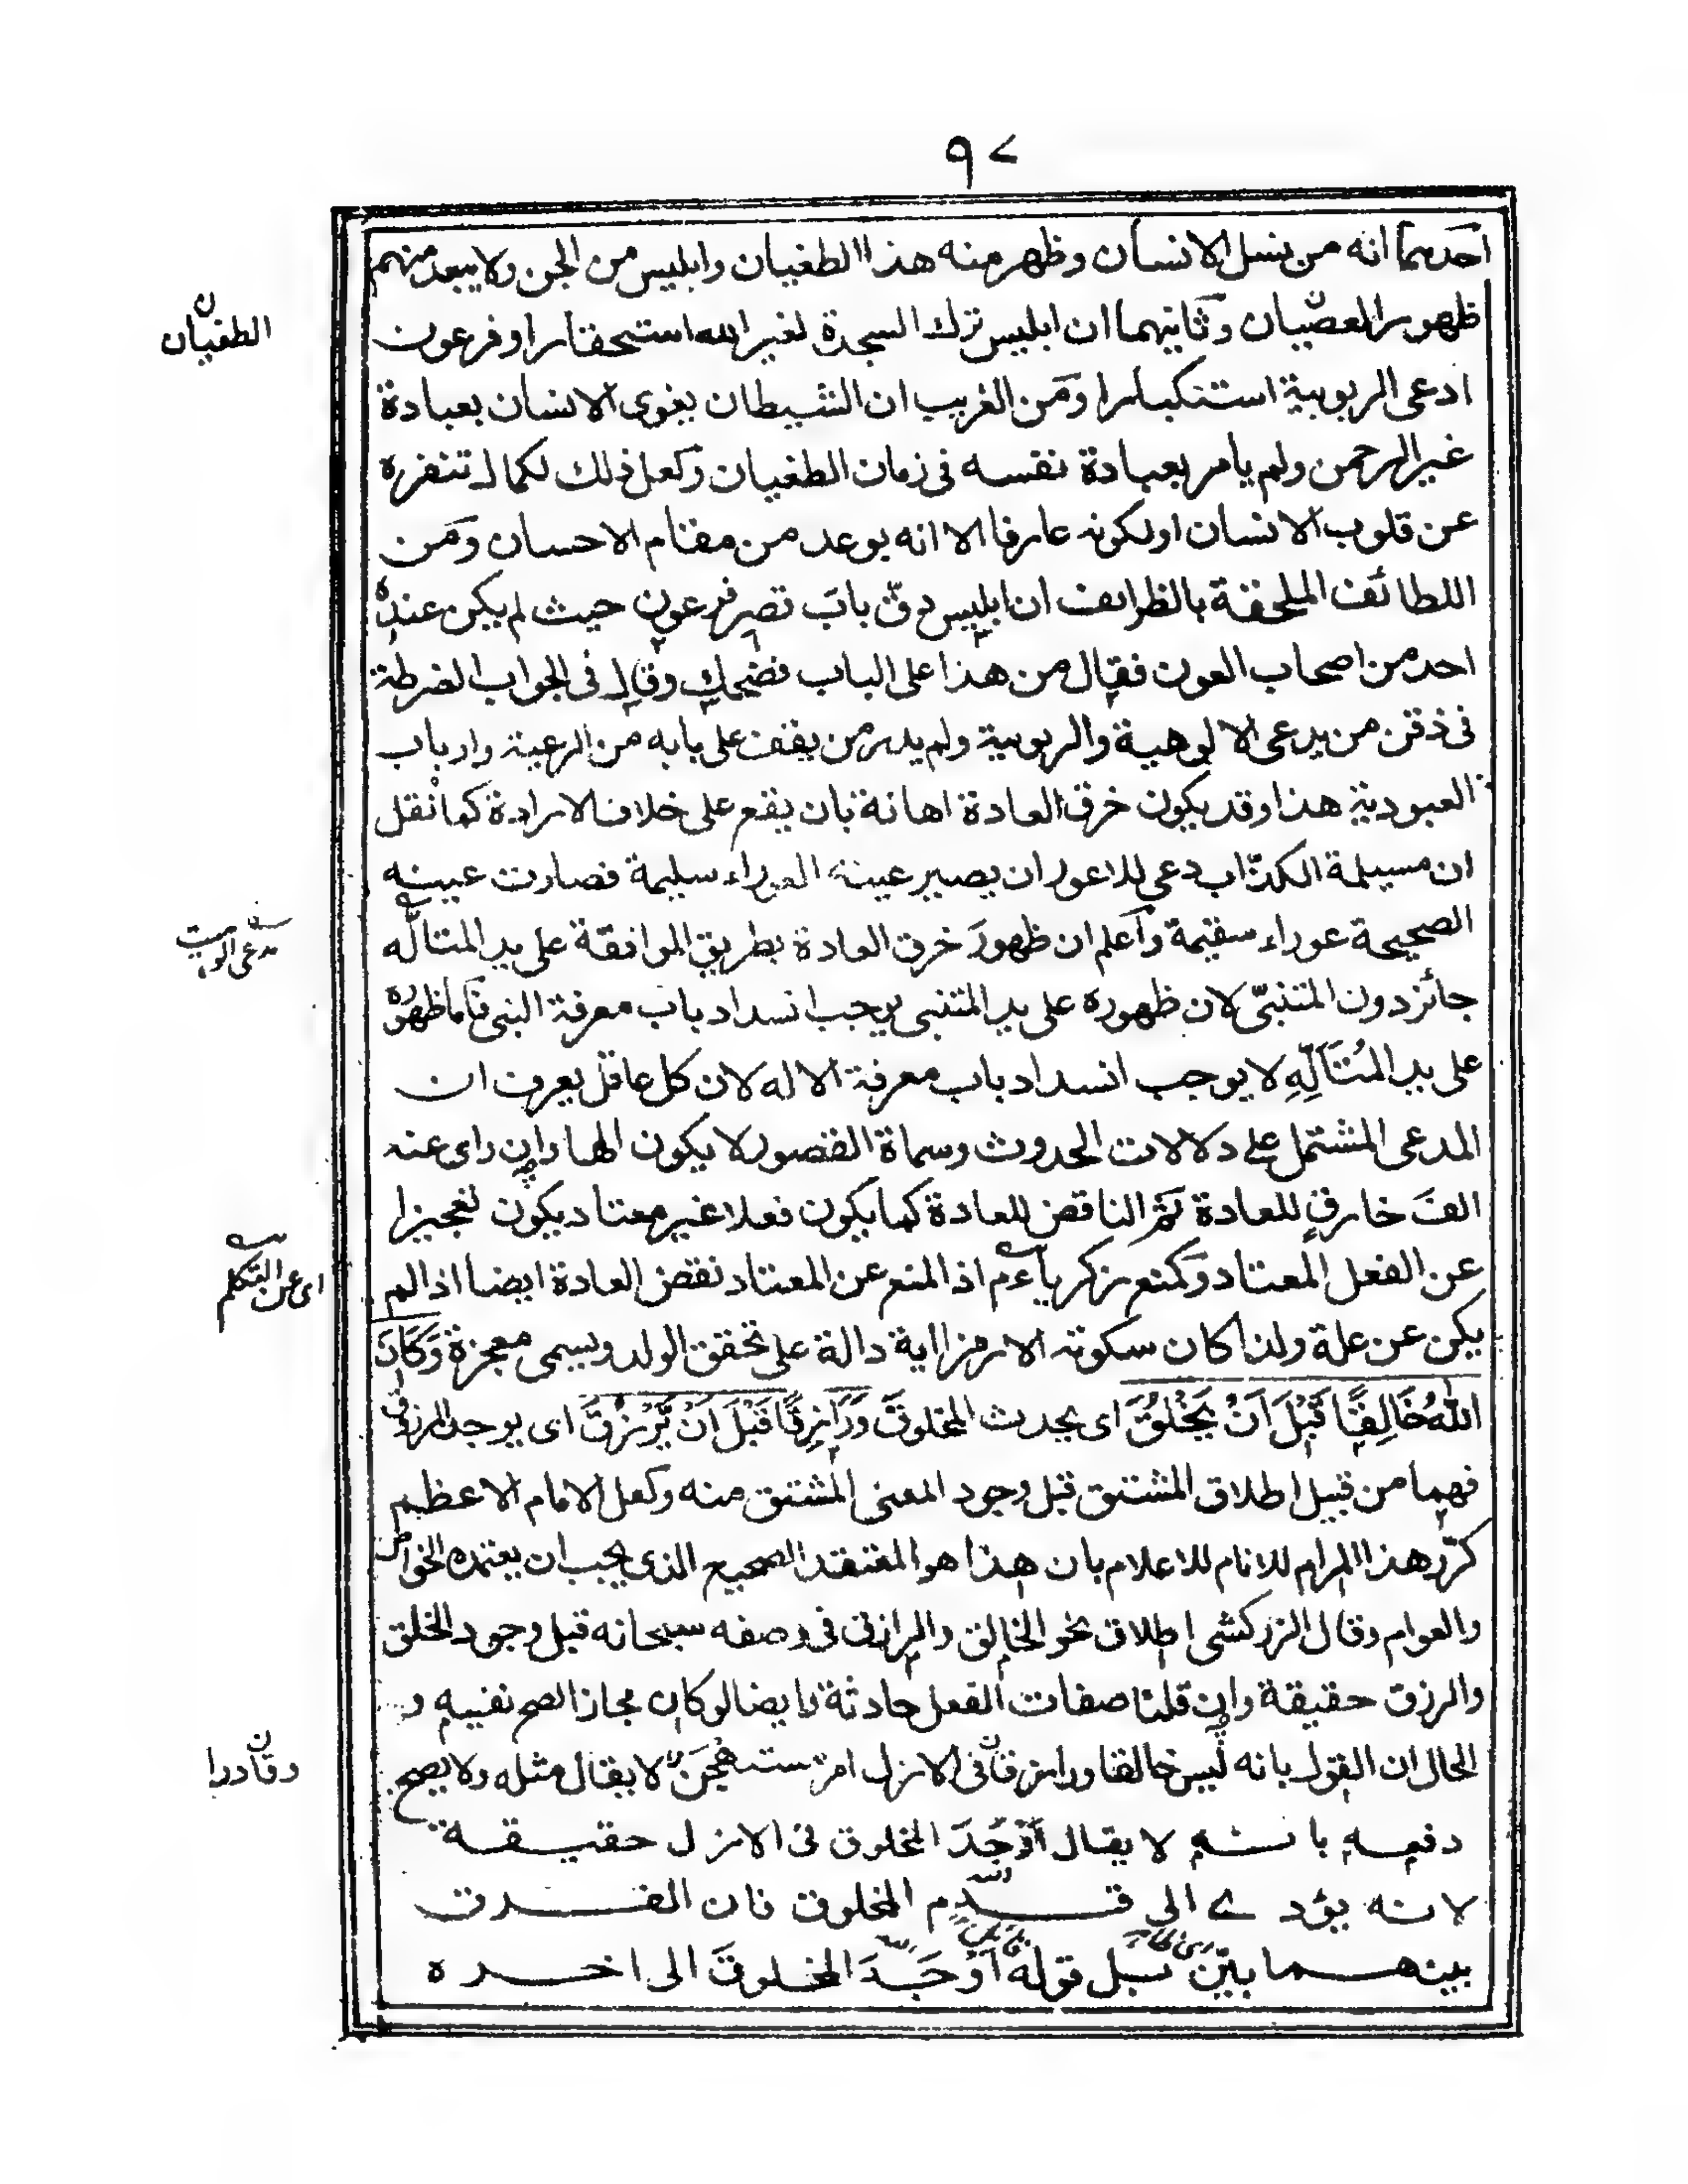 ٩٧
احدهما انه من نسل الانسان وظهر منه هذا الطغيان وابليس من الجن ولا يبعد منهم
ظهور العصيان وثانيهما ان ابليس ترك السجدة لغير الله استحقارا وفرعون
الطغيان
ادعى الربوبية استكبارا ومن الغريب ان الشيطان يغوى الانسان بعبادة
غير الرحمن ولم يامر بعبادة نفسه فى زمان الطغيان ولعل ذلك لكمال تنفره
عن قلوب الانسان او لكونه عارفا الا انه بوعد من مقام الاحسان ومن
اللطائف الملحقة بالظرائف ان ابليس دق باب قصر فرعون حيث لم يكن عنده
احد من اصحاب العون فقال من هذا على الباب فضحك وقال فى الجواب الضرطة
فى ذقن من يدعى الالوهية والربوبية ولم يدر من يقف على بابه من الرعية وارباب
العبودية هذا وقد يكون خرق العادة اهانة بان يقع على خلاف الارادة كما نقل
ان مسيلمة الكذّاب دعى للاعور ان يصير عينه العوراء سليمة فصارت عينه
الصحيحة عوراء سقيمة واعلم ان ظهورَ خرق العادة بطريق الموافقة على يد المتألّه
مدعى الوهيت
جائز دون المتنبّى لان ظهوره على يد المتنبى يوجب انسداد باب معرفة النبى فاما ظهوره
على يد المُتَألّهِ لا يوجب انسداد باب معرفة الاله لان كل عاقل يعرف ان
المدعى المشتمل على دلالات الحدوث وسماة القصور لا يكون الها وان راى عنه
الفَ خارقٍ للعادة ثم الناقض للعادة كما يكون فعلا غير معتاد يكون تعجيزا
عن الفعل المعتاد وكمنع زكرياء عم اذ المنع عن المعتاد نقض العادة ايضا اذا لم
اى عن التكلم
يكن عن علة ولذا كان سكوته الا رمزا اية دالة على تحقق الولد ويسمى معجزة وَكَانَ
اللهُ خَالِقًا قَبْلَ اَنْ يَخْلُقَ اى يحدث المخلوقَ وَرَازِقًا قَبْلَ اَنْ يَّرْزُقَ اى يوجد المرزوق
فهما من قبيل اطلاق المشتق قبل وجود المعنى المشتق منه ولعل الامام الاعظم
كرّر هذا المرام للانام للاعلام بان هذا هو المعتقد الصحيح الذى يجب ان يعتمده الخواص
والعوام وقال الزركشى اطلاق نحو الخالق والرازق فى وصفه سبحانه قبل وجود الخلق
والرزق حقيقة وان قلنا صفات الفعل حادثة وايضا لو كان مجازا لصح نفيه و
الحال ان القول بانه ليس خالقا ورازقا فى الازل امر مستهجن لا يقال مثله ولا يصح
وقادرا
دفعه بانه لا يقال أوْجَدَ المخلوق فى الازل حقيقة
لانه يؤدى الى قدم المخلوق فان الفرق
بينهما بيّن بل قوله أوْجَدَ المخلوقَ الى اخره